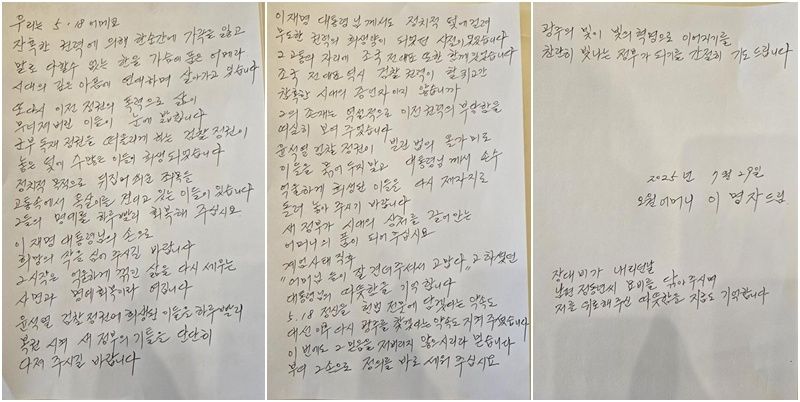 우리는 5.18 어메요
잔혹한 권력에 의해 한순간에 가족을 잃고
말로 다할수 없는 한을 가슴에 품은 어메라
시대의 깊은 아픔에 연대하며 살아가고 있습니다
또다시 이전 정권의 폭력으로 삶이
무너져 버린 이들이 눈에 밟힙니다
군부 독재 정권을 떠올리게 하는 검찰 정권이
놓은 덫에 수많은 이들이 희생 되었습니다
정치적 목적으로 뒤집어 씌운 죄목을
고통속에서 옥살이를 견디고 있는 이들이 있습니다
그들의 명예를 하루빨리 회복해 주십시요
이재명 대통령님의 손으로
희망의 작은 심어 주시길 바랍니다
그 시작은 억울하게 꺾인 삶을 다시 세우는
사면과 명예회복이라 여깁니다
윤석열 검찰정권에 희생된 이들을 하루빨리
복권 시켜 새 정부의 기틀을 단단히
다져 주시길 바랍니다
이재명 대통령님께서도 정치적 덫에 걸려
무도한 권력의 희생양이 되었던 시절이 있었습니다
그 고통의 자리에 조국 전대표 또한 함께 있었습니다
조국 전대표 역시 검찰 권력이 할퀴고간
참혹한 시대의 증언자 아니 않습니까
그의 존재는 역설적으로 이전 권력의 부당함을
여실히 보여 주었습니다
윤석열 검찰 정권이 빌린 법의 올가미로
이들을 묶어 두지말고 대통령님께서 손수
억울하게 희생된 이들을 다시 제자리로
돌려 놓아 주시기 바랍니다
새 정부가 시대의 상처를 끌어안는
어머니의 품이 되어 주십시요
계엄사태 직후
"어머님들이 잘 견뎌주셔서 고맙다"고 하셨던
대통령님의 따뜻함을 기억합니다
5.18 정신을 헌법 전문에 담겠다는 약속도
대선 이후 다시 광주를 찾겠다는 약속도 지켜 주셨습니다
이번에도 그 믿음을 저버리지 않으시리라 믿습니다
부디 그 손으로 정의를 바로 세워 주십시요
광주의 빛이 빛의 혁명으로 이어지기를
찬란히 빛나는 정부가 되기를 간절히 기도드립니다
2025년 7월 29일
오월어머니 이명자드림
장대비가 내리던날
남편 정동년씨 묘비를 닦아주시며
저를 위로해 주신 따뜻함을 지금도 기억합니다